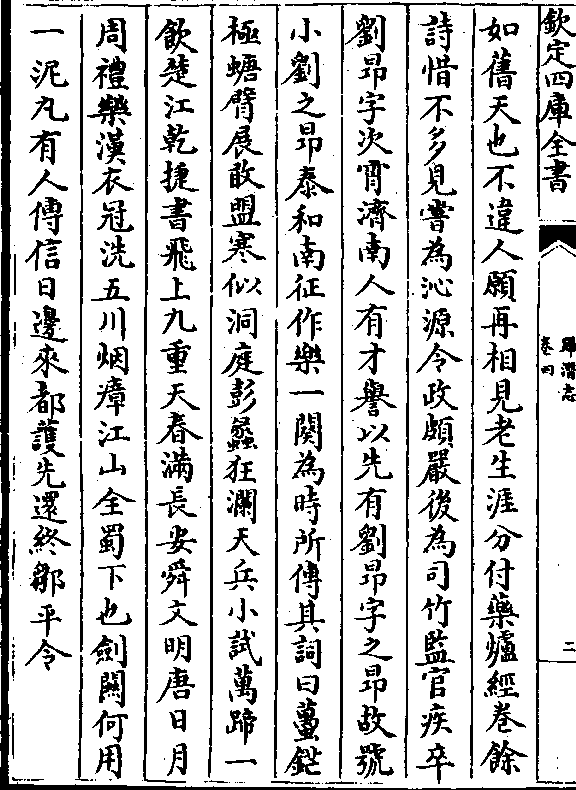 欽定四庫全書
歸潛志
卷四
二
如舊天也不違人願再相見老生涯分付藥爐經卷餘
詩惜不多見嘗為沁源令政頗嚴後為司竹監官疾卒
劉昂字次霄濟南人有才譽以先有劉昂字之昂故號
小劉之昂泰和南征作樂一闋為時所傳其詞曰蠆鋩
極螗臂展敢盟寒似洞庭彭蠡狂瀾天兵小試萬蹄一
飲楚江乾捷書飛上九重天春滿長安舜文明唐日月
周禮樂漢衣冠洗五川烟瘴江山全蜀下也劍闗何用
一泥丸有人傳信日邊來都護先還終鄒平令